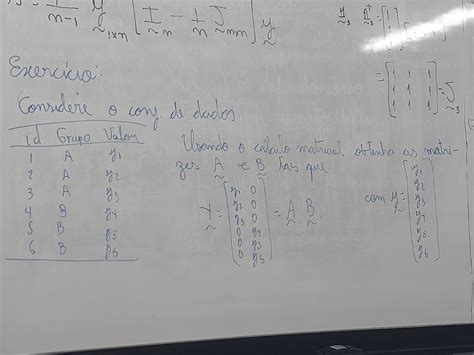 1/(n-1) y 1xn [ I n - 1/n J nxn ] y
1 1 1
1 1 1 = J 3
1 1 1
Exercício:
Considere o conj. de dados
id Grupo Valor
1 A y1
2 A y2
3 A y3
4 B y4
5 B y5
6 B y6
Usando o cálculo matricial obtenha as matri-
zes A e B tais que
y1 0
y2 0
y3 0
0 y4
0 y5
0 y6
= A B
com y =
y1
y2
y3
y4
y5
y6